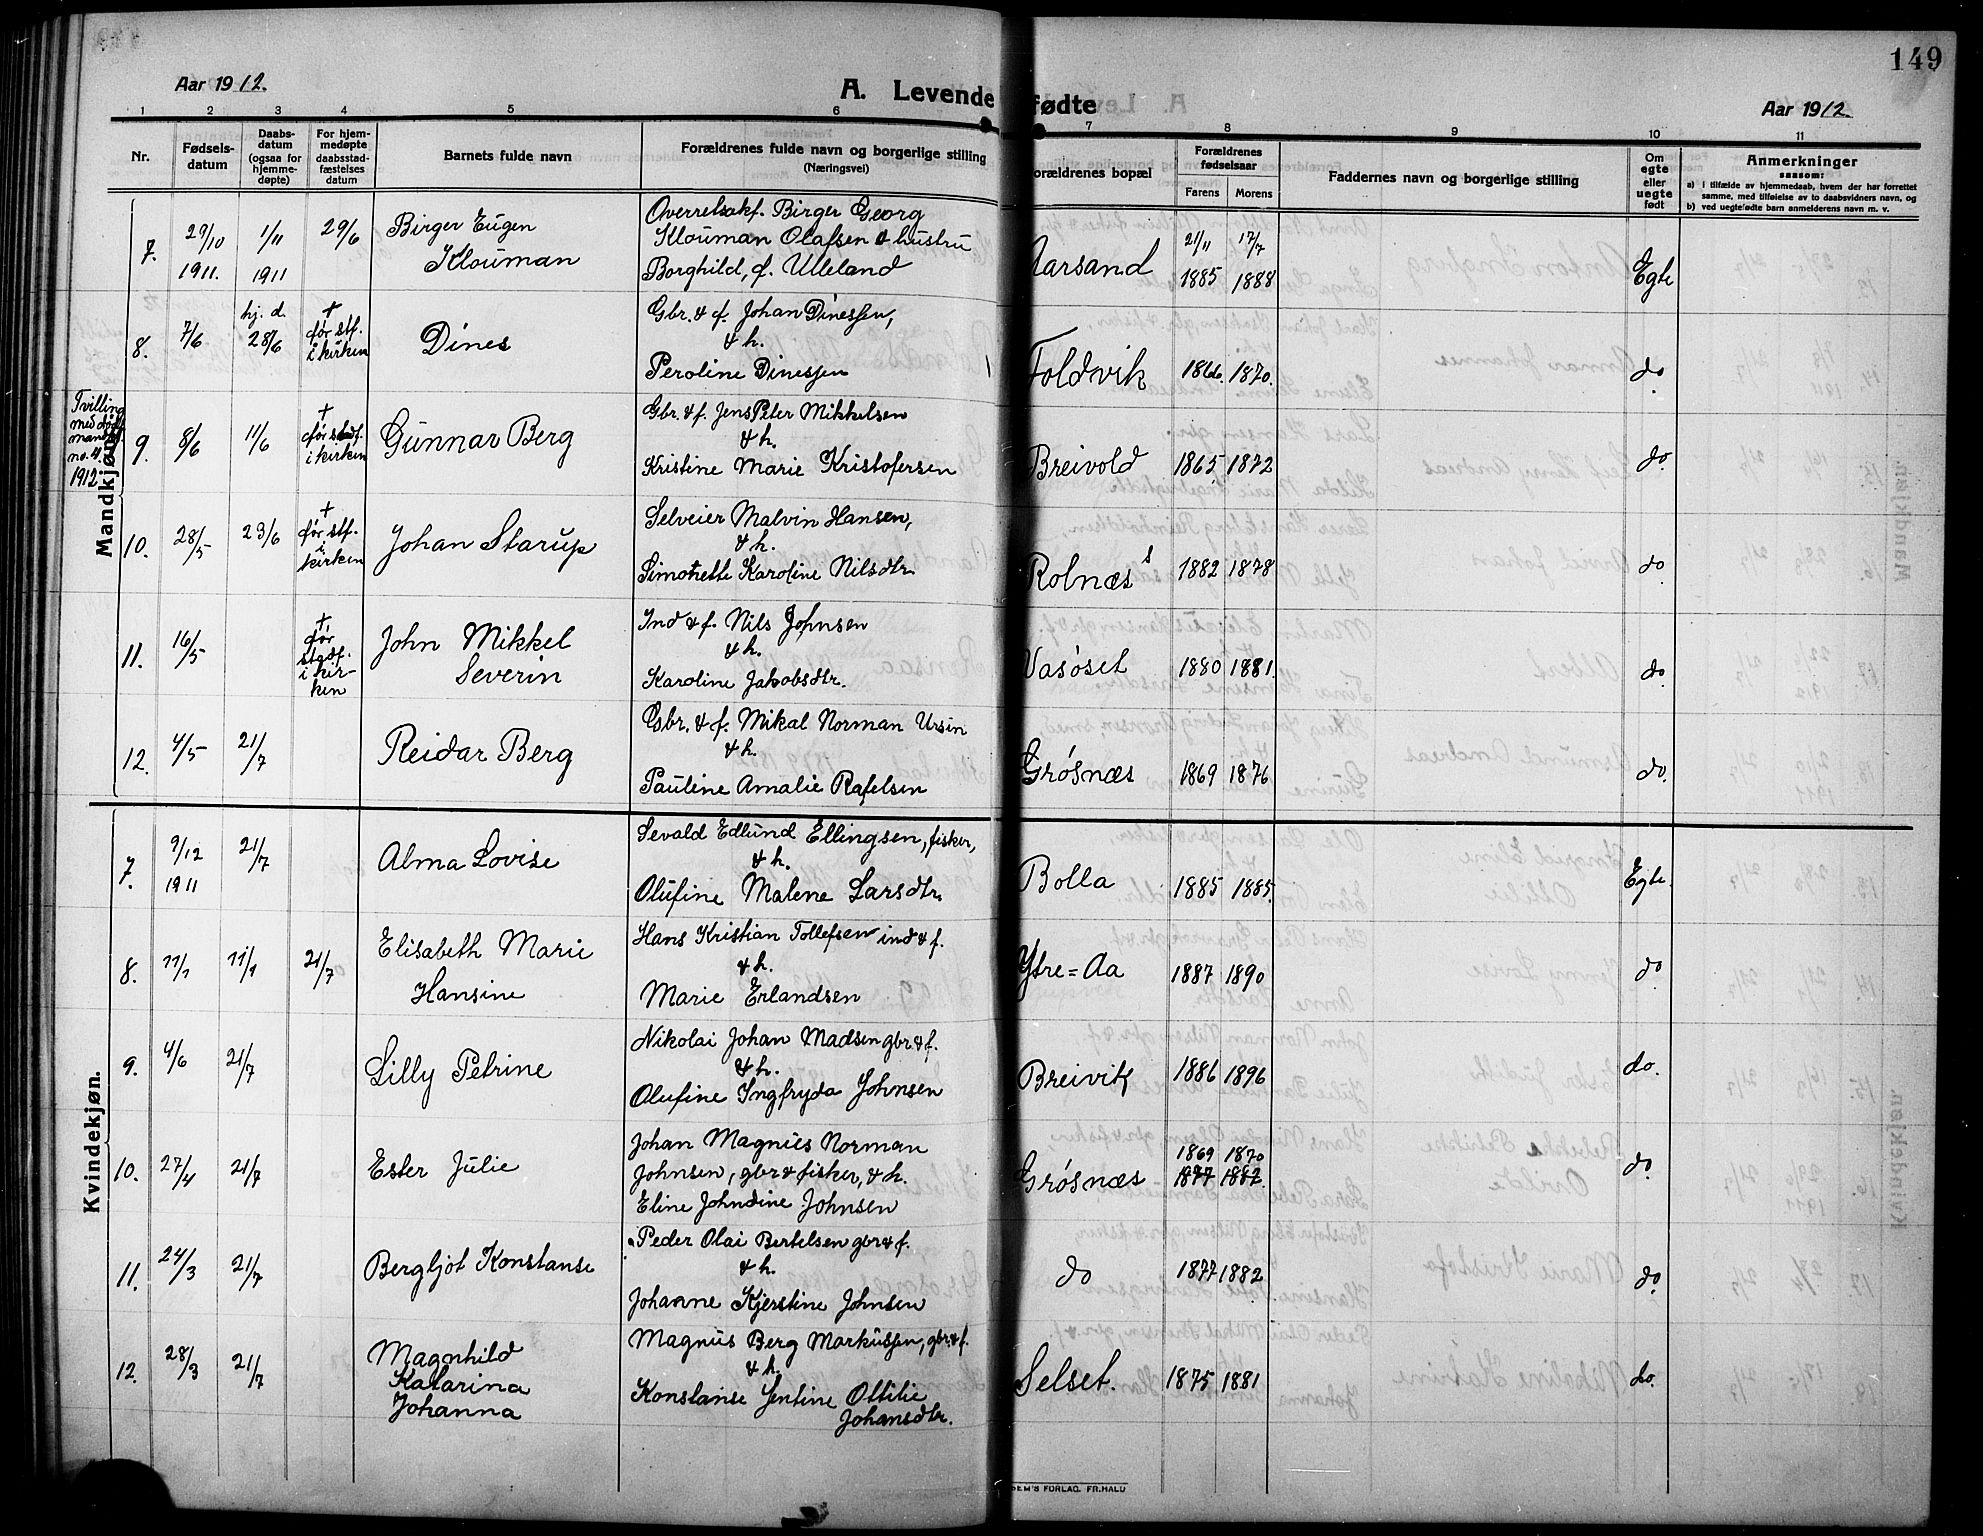 149
Aar 1912.
A. Levende fødte
Aar 1912
1 2 3 4 5 6 7 8 9 10 11
Nr.
Fødsels-
datum
Daabs-
datum
(ogsaa for
hjemme-
døpte)
For hjem-
medøpte
daabsstad-
fæstelses
datum
Barnets fulde navn
Forældrenes fulde navn og borgerlige stilling
(Næringsvei)
orældrenes bopæl
Forældrenes
fødselsaar
Farens Morens
Faddernes navn og borgerlige stilling
Om
egte
eller
uegte
født
Anmerkninger
saasom:
a) i tilfælde av hjemmedaab, hvem der har forrettet
samme, med tilføielse av to daabsvidners navn, og
b) ved uegtefødte barn anmelderens navn m. v.
Mandkjøn.
7. 29/10 1911. 1/11 1911 29/6
Birger Eugen
Klouman
Overretssakf. Birger Georg
Klouman Olafsen & hustru
Borghild, f. Ulleland
Aarsand 21/11 1885 17/7 1888 Egte
8. 7/6 hj. d. 28/6
†
før stf.
i kirken
Dines
Gbr. & f. Johan Dinessen,
& h.
Peroline Dinessen
Foldvik 1866. 1870. do
Tvilling
med dødf.
mandkj.
no. 4.
1912.
9. 8/6 11/6
†
før stadf.
i kirken
Gunnar Berg
Gbr. & f. Jens Peter Mikkelsen
& h.
Kristine Marie Kristofersen
Breivold 1865 1872 do
10. 28/5 23/6
†
før stf.
i
kirken
Johan Starup
Selveier Malvin Hansen,
& h.
Simonette Karoline Nilsdtr.
Rolnæs 1882 1878 do
11. 16/5
†
før
stadf.
i kir-
ken
John Mikkel
Severin
Ind & f. Nils Johnsen
& h.
Karoline Jakobsdtr.
Vasøset 1880 1881. do
12. 4/5 21/7
Reidar Berg
Gbr. & f. Mikal Norman Ursin
& h.
Pauline Amalie Rafelsen
Grøsnæs 1869 1876 do.
Kvindekjøn.
7. 9/12 1911 21/7
Alma Lovise
Sevald Edlund Ellingsen, fisker,
& h.
Olufine Malene Larsdtr.
Bolla 1885 1885. Egte.
8. 11/1 11/1 21/7
Elisabeth Marie
Hansine
Hans Kristian Tollefsen ind & f.
& h.
Marie Erlandsen
Ytre=Aa 1887 1890 do
9. 4/6 21/7
Lilly Petrine
Nikolai Johan Madsen gbr. & f.
& h.
Olufine Ingfryda Johnsen
Breivik 1886 1896 do.
10. 27/4 21/7
Ester Julie
Johan Magnus Norman
Johnsen, gbr & fisker, & h.
Eline Johndine Johnsen
Grøsnæs 1869 1870
1877 1882. do
11. 24/3 21/7
Bergljot Konstanse
Peder Olai Bertelsen gbr & f.
& h.
Johanne Kjerstine Johnsen
do 1877 1882 do
12. 28/3 21/7
Magnhild
Katarina
Johanna
Magnus Berg Markussen, gbr. & f.
& h.
Konstanse Jentine Ottilie
Johansdtr.
Selset. 1875 1881 do.
DEM'S FORLAG. FR.HALD